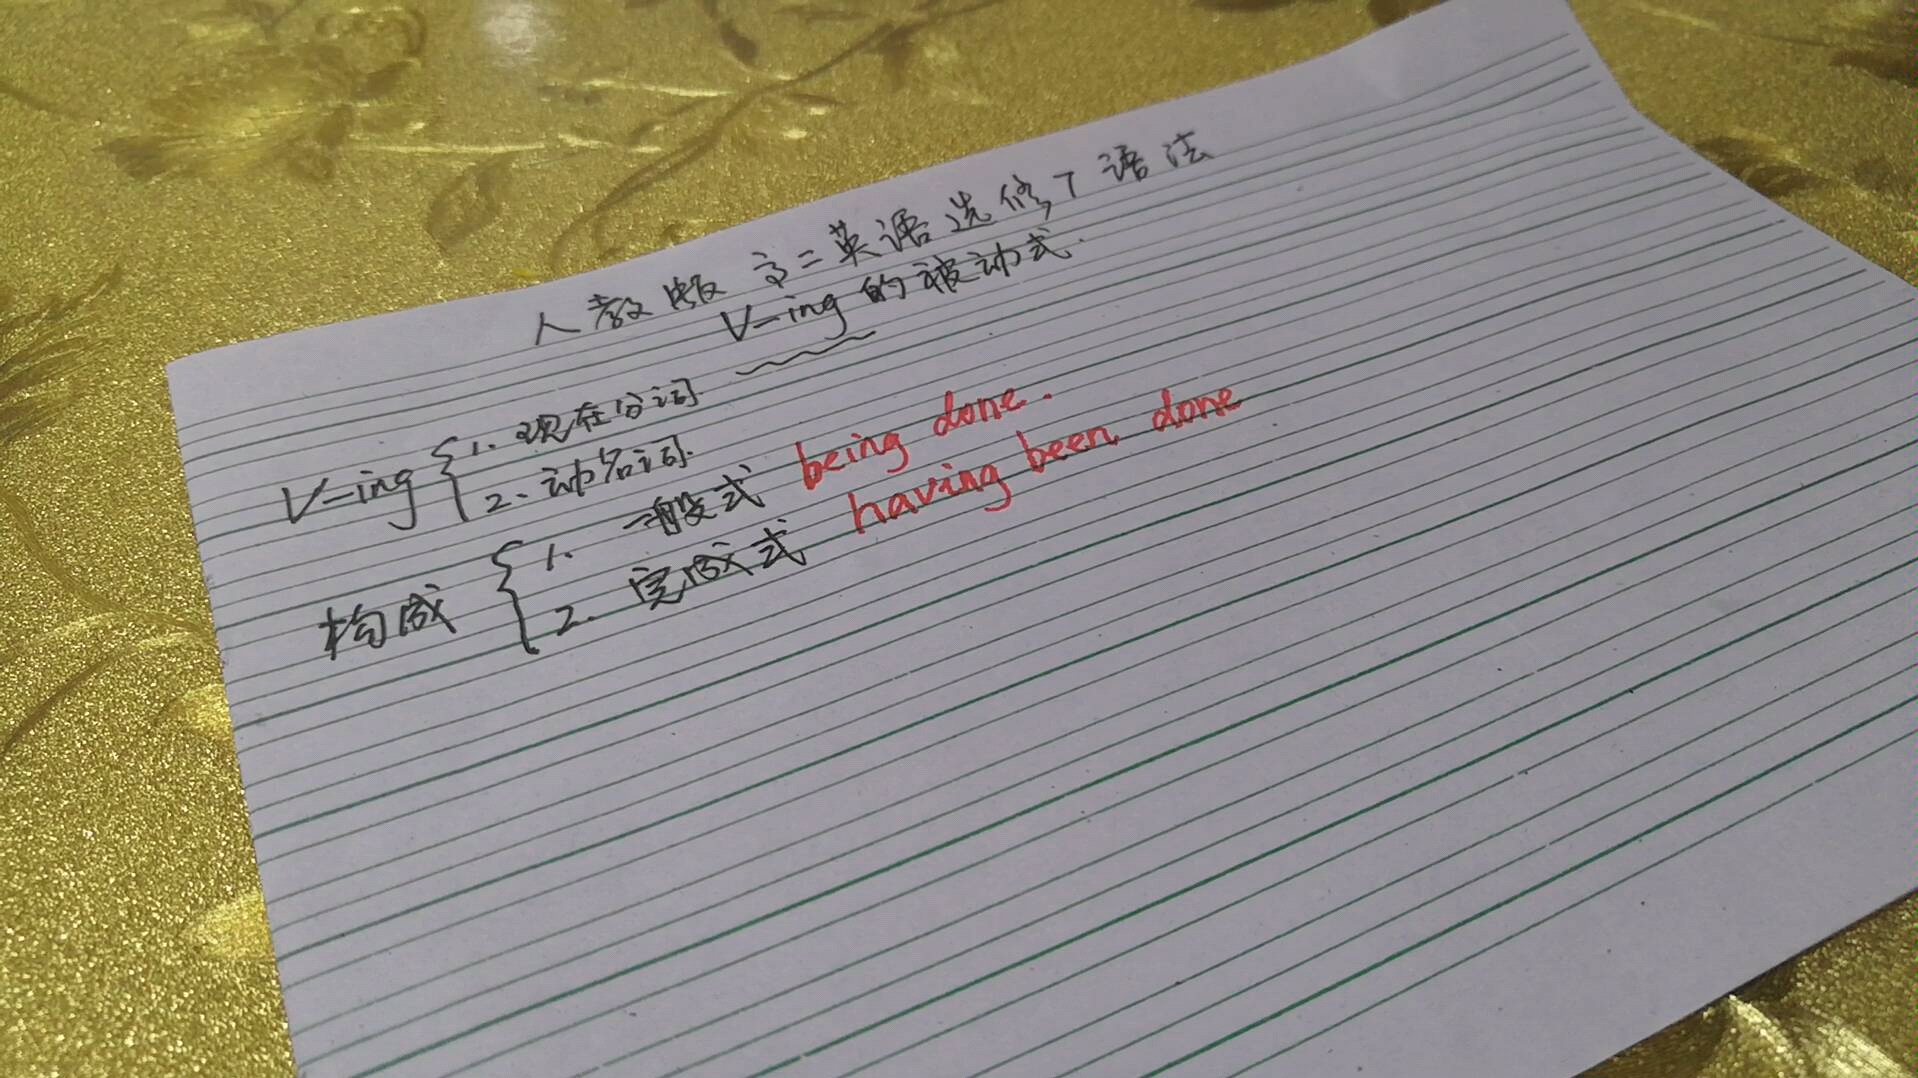 人教版 高二英语选修7语法
V-ing的被动式.
V-ing { 1. 现在分词
2. 动名词.
构成 { 1. 一般式 being done.
2. 完成式 having been done